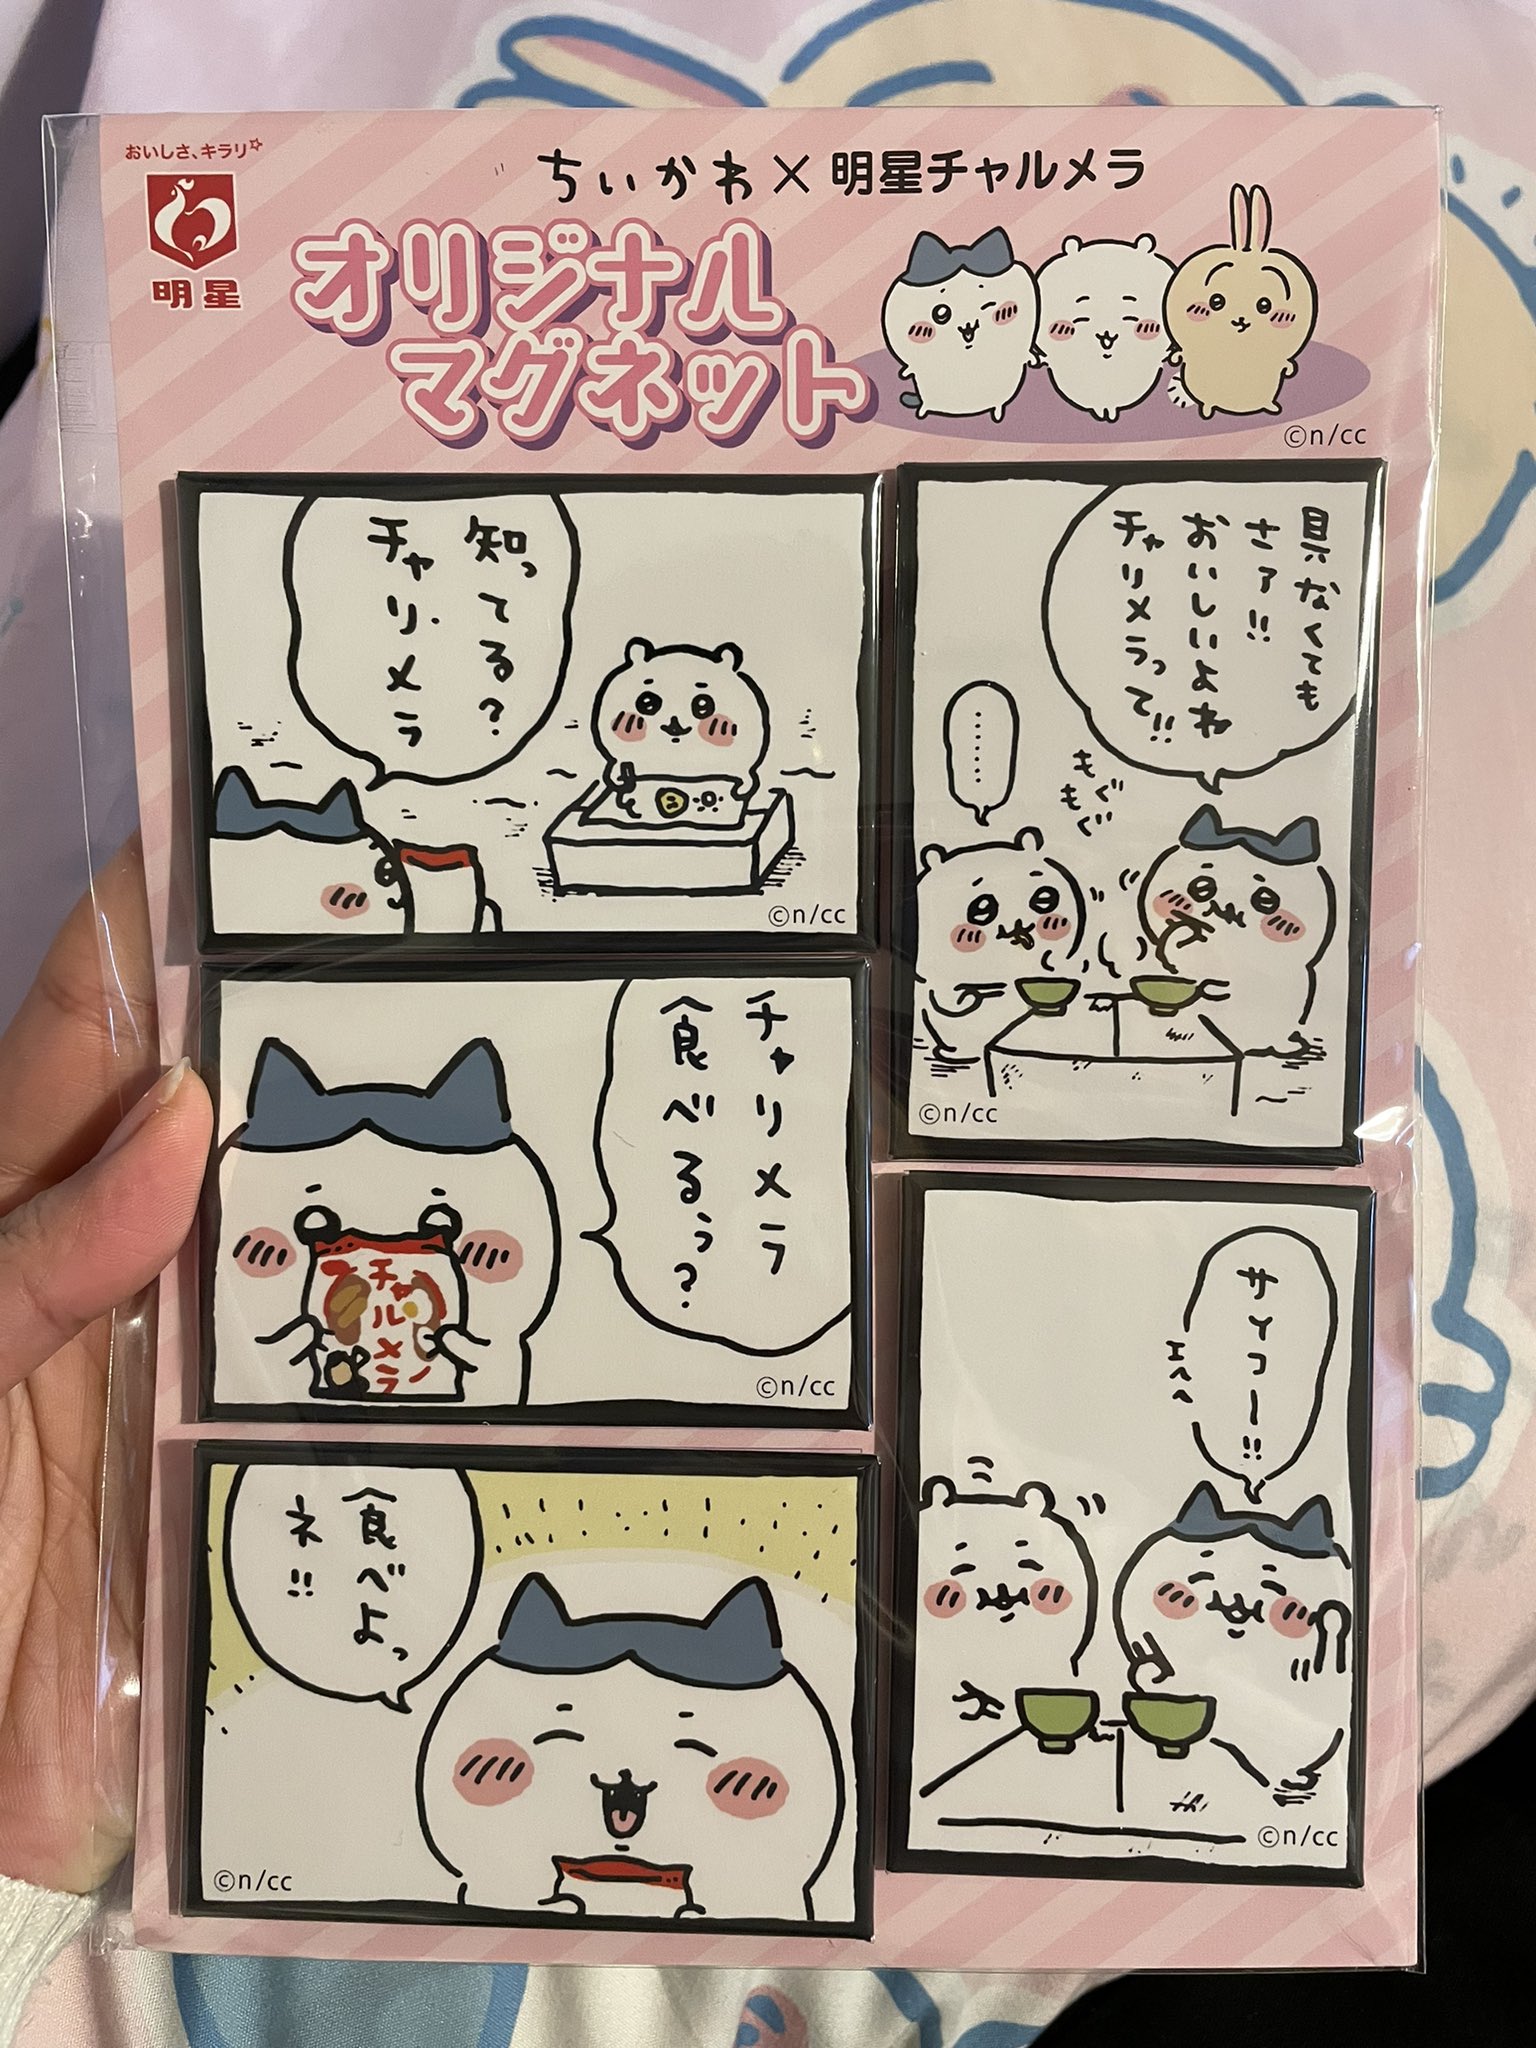 おいしさ、キラリ☆
明星
ちいかわ×明星チャルメラ
オリジナル
マグネット
©n/cc
知ってる?
チャリメラ
©n/cc
チャリメラ
食べるぅ?
チャルメラ
©n/cc
食べよっ
ネ!!
©n/cc
具なくても
さァ!!
おいしいよね
チャリメラって!!
………
もぐ
もぐ
©n/cc
サイコー!!
エヘヘ
©n/cc